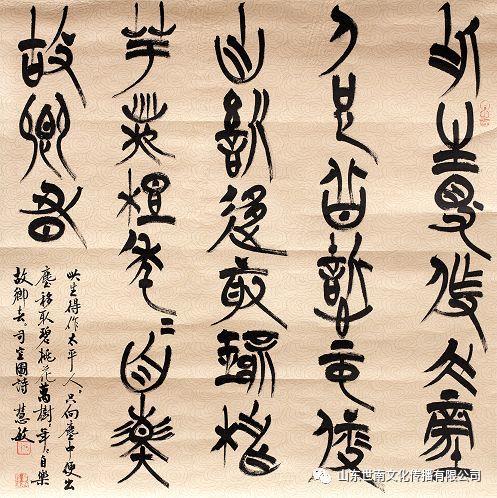 此生得作太平
人只向塵中便
出塵移取碧桃
花萬樹年〻自樂
故鄉春
此生得作太平人，只向塵中便出
塵移取碧桃花萬樹，年〻自樂
故鄉春。司空圖詩 慧敏
山东世南文化传播有限公司